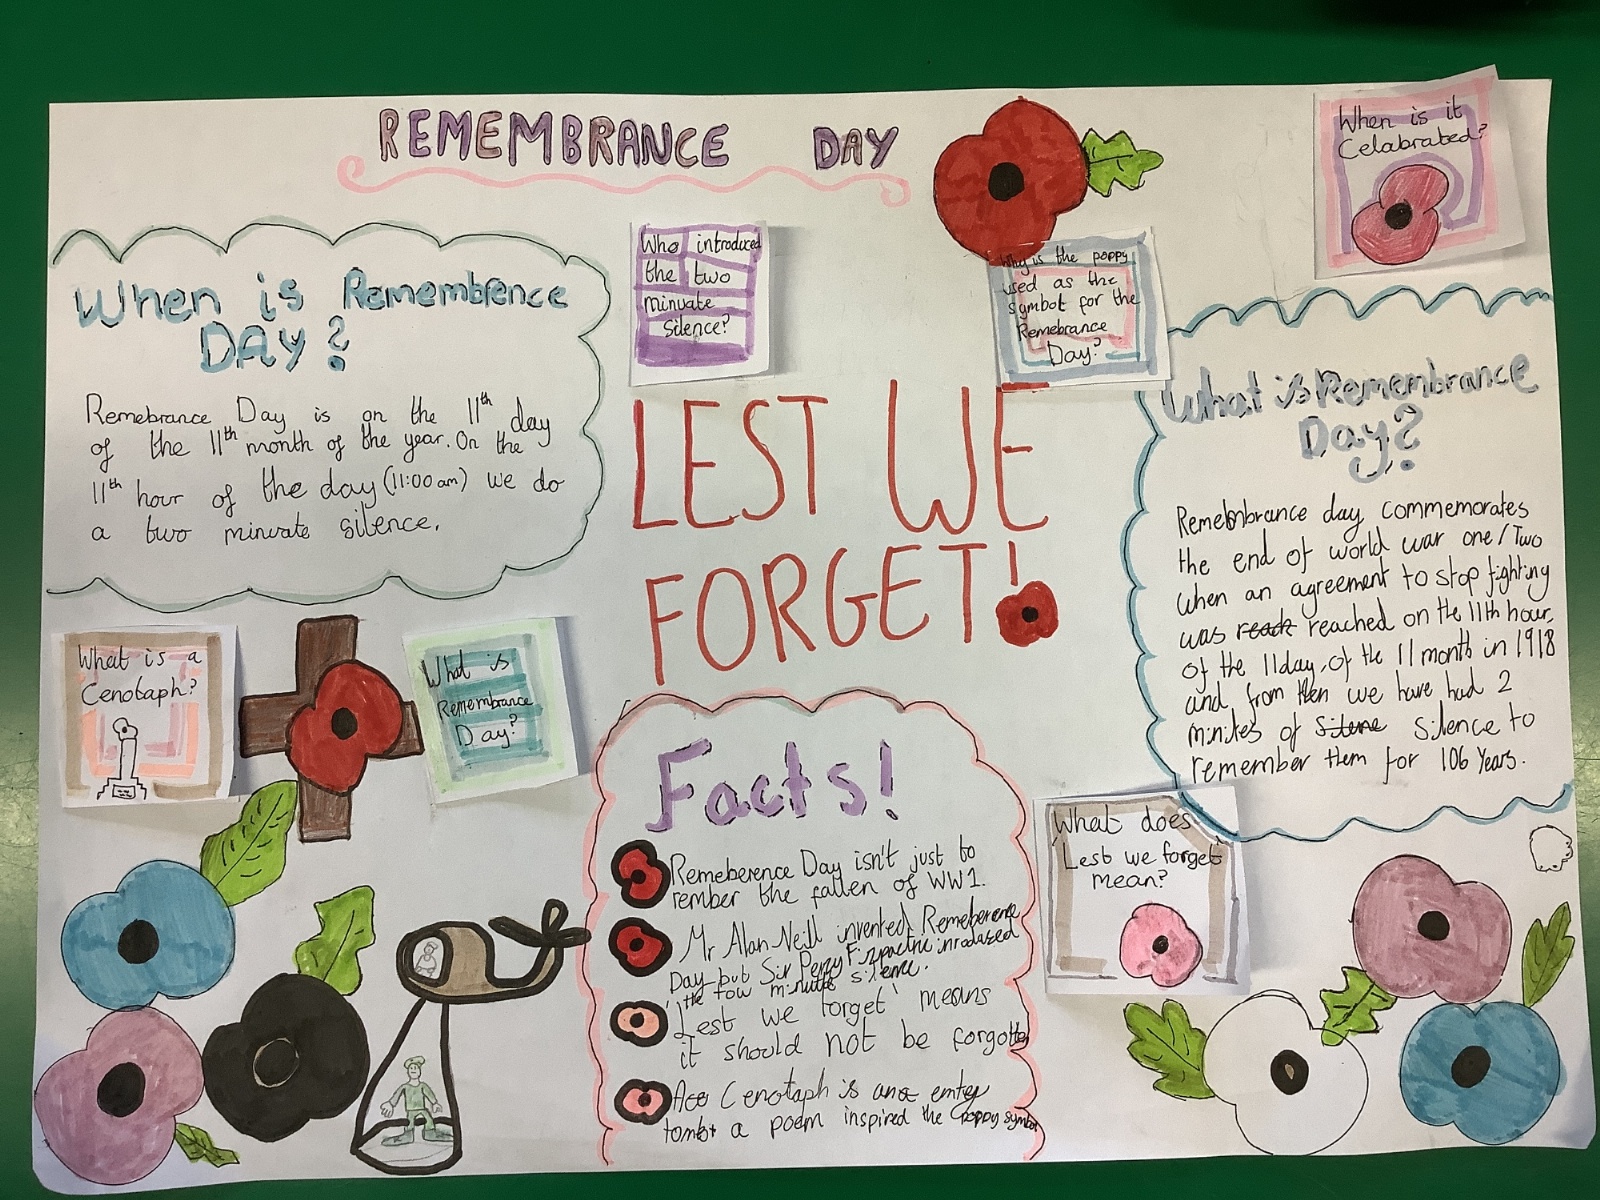 REMEMBRANCE DAY
When is it
Celabrated?
When is Remembrence
DAY?
Remebrance Day is on the 11th day
of the 11th month of the year. On the
11th hour of the day (11:00 am) we do
a two minuate silence.
Who introduced
the two
minuate
Silence?
Why is the poppy
used as the
symbol for the
Remebrance
Day?
LEST WE
FORGET!
What is Remembrance
Day?
Remebmbrance day commemorates
the end of world war one/Two
when an agreement to stop fighting
was reach reached on the 11th hour,
of the 11day, of the 11 month in 1918
and from then we have had 2
minites of Silene Silence to
remember them for 106 Years.
What is a
Cenotaph?
What is
Remembrance
Day?
Facts!
Remeberence Day isn't just to
rember the fallen of WW1.
Mr Alan Neill invented Remeberence
Day but Sir Percy Fizpactric inrodased
the tow minutes silence.
'Lest we forget' means
it should not be forgotten
Cenotaph is an emtey
tombt a poem inspired the poppy symbol
What does
Lest we forget
mean?